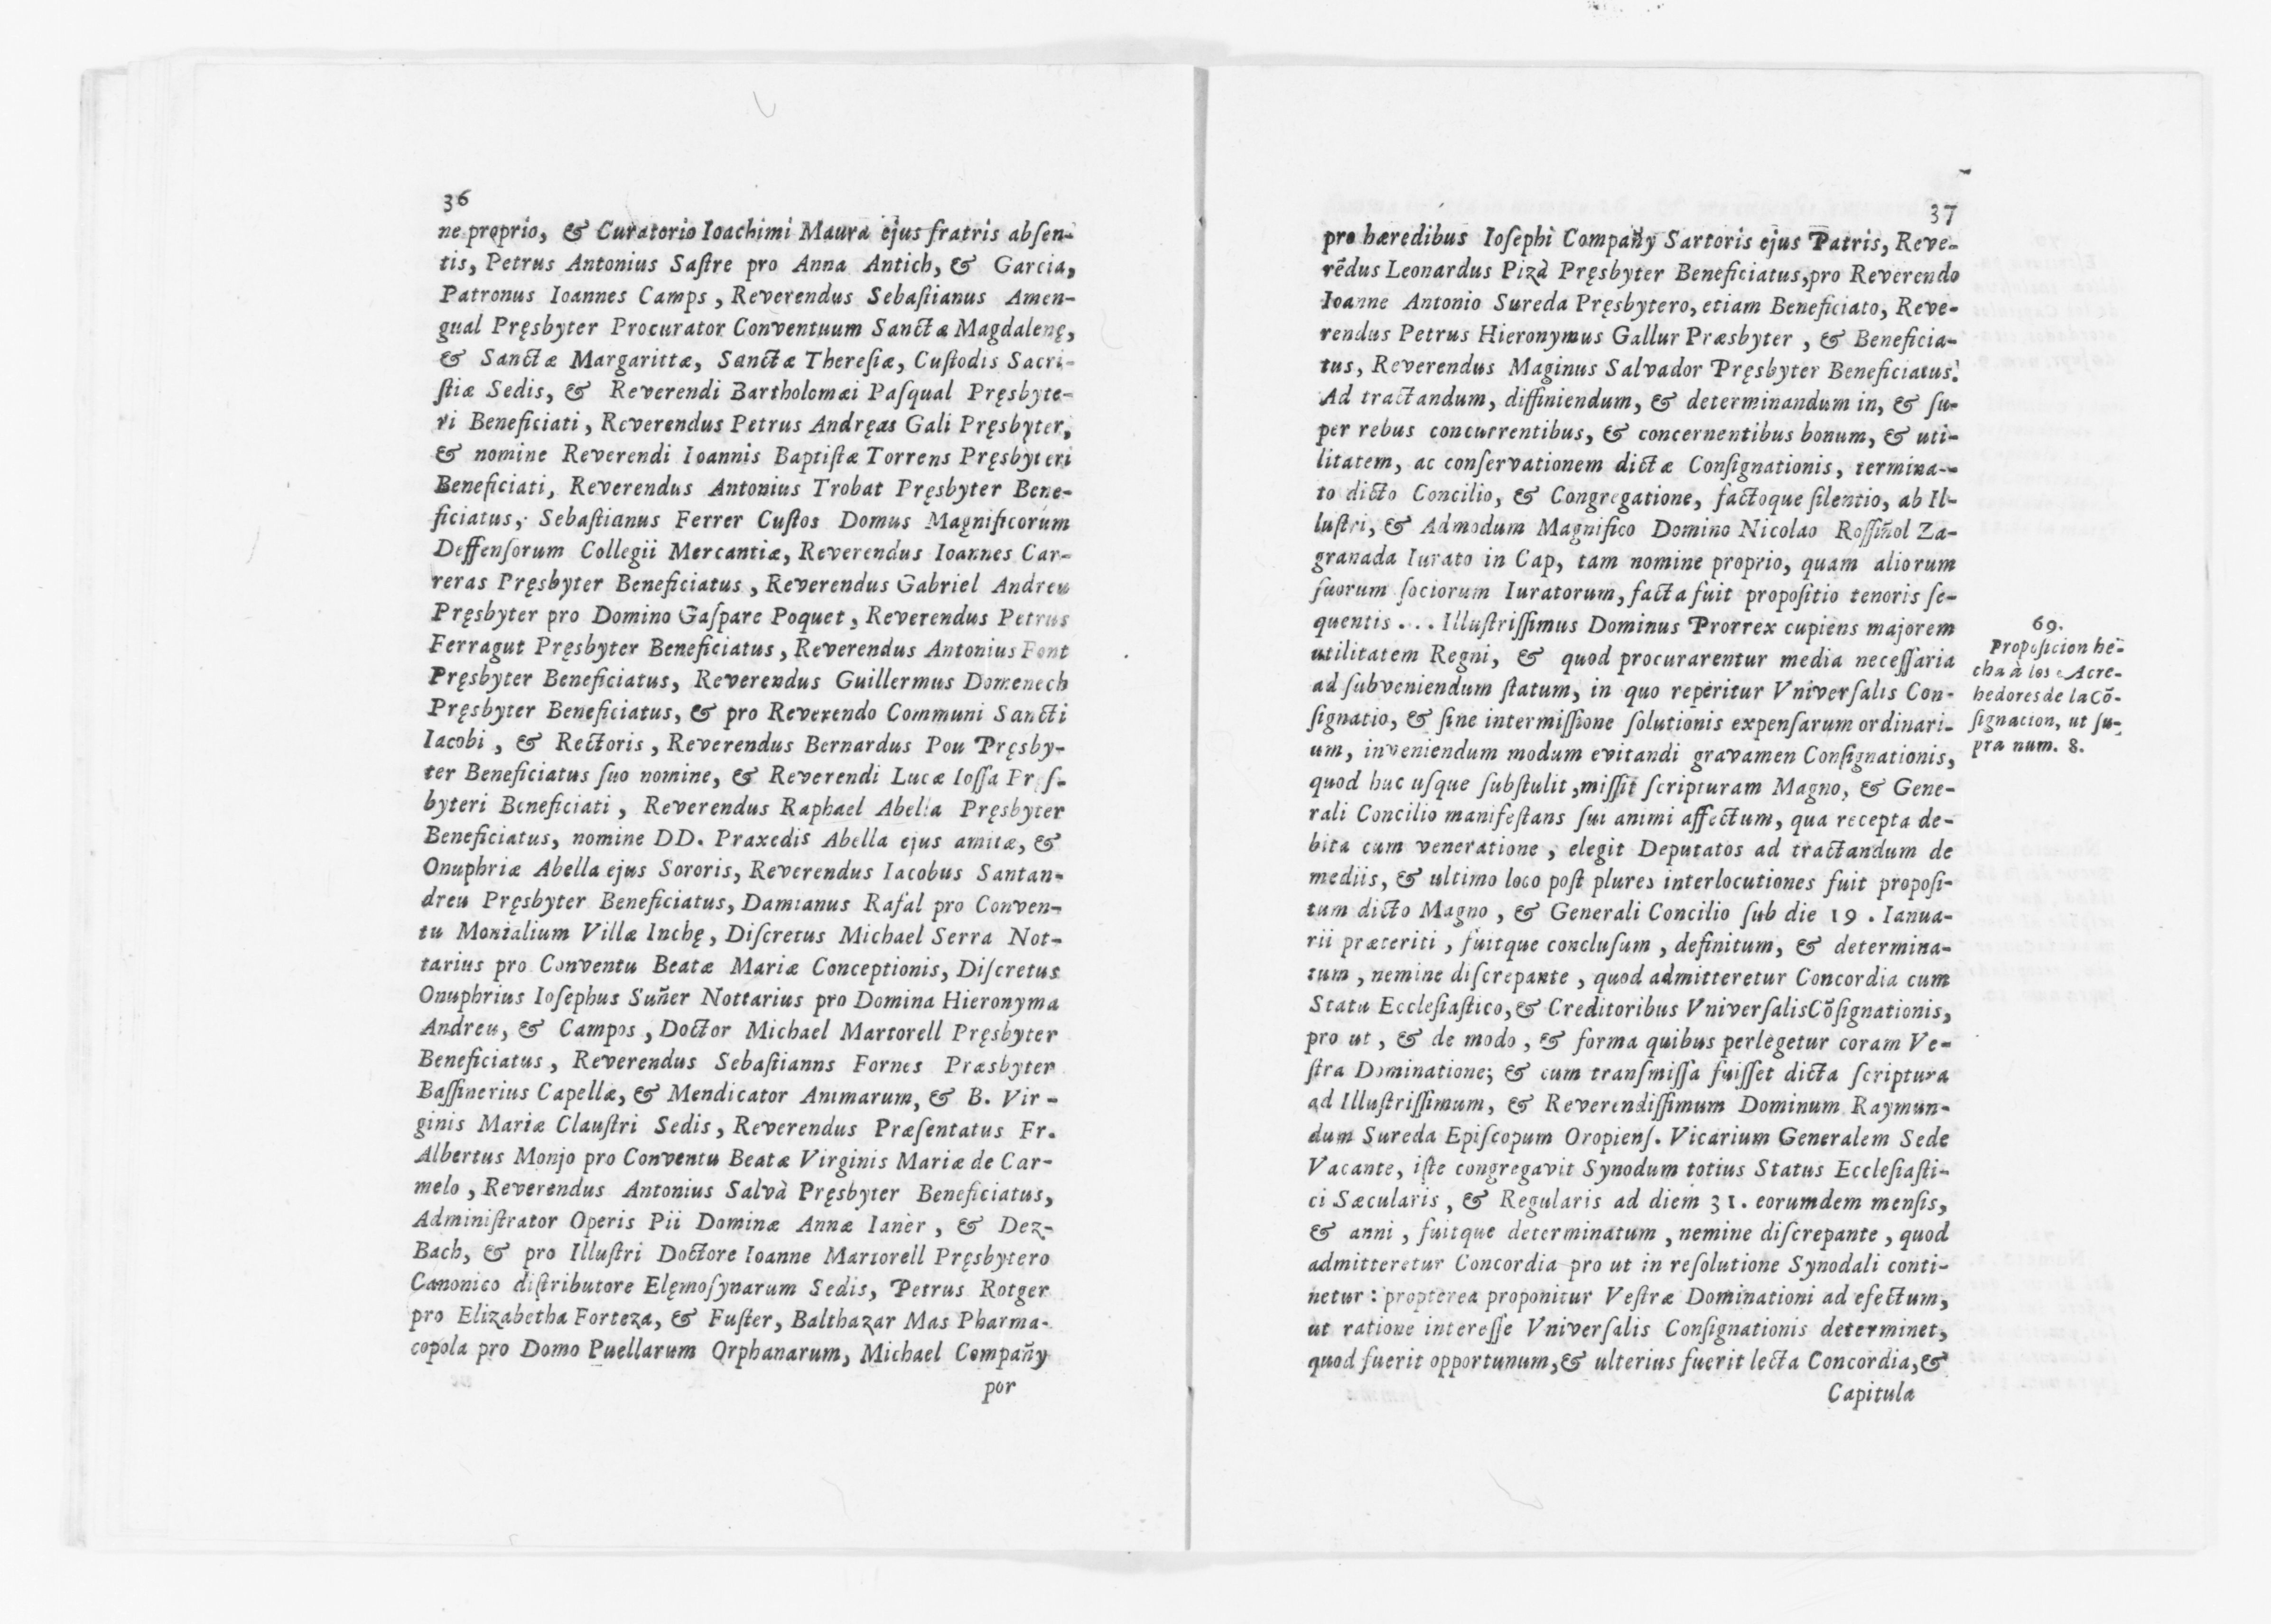 36
ne proprio, & Curatorio Ioachimi Maura ejus fratris absen-
tis, Petrus Antonius Saſtre pro Anna Antich, & Garcia,
Patronus Ioannes Camps, Reverendus Sebaſtianus Amen-
gual Pręsbyter Procurator Conventuum Sanctæ Magdalenę,
& Sanctæ Margarittæ, Sanctæ Thereſiæ, Cuſtodis Sacri-
ſtiæ Sedis, & Reverendi Bartholomæi Paſqual Pręsbyte-
ri Beneficiati, Reverendus Petrus Andręas Gali Pręsbyter,
& nomine Reverendi Ioannis Baptiſtæ Torrens Pręsbyteri
Beneficiati, Reverendus Antonius Trobat Pręsbyter Bene-
ficiatus, Sebaſtianus Ferrer Cuſtos Domus Magnificorum
Deffenſorum Collegii Mercantiæ, Reverendus Ioannes Car-
reras Pręsbyter Beneficiatus, Reverendus Gabriel Andreu
Pręsbyter pro Domino Gaſpare Poquet, Reverendus Petrus
Ferragut Pręsbyter Beneficiatus, Reverendus Antonius Font
Pręsbyter Beneficiatus, Reverendus Guillermus Domenech
Pręsbyter Beneficiatus, & pro Reverendo Communi Sancti
Iacobi, & Rectoris, Reverendus Bernardus Pou Pręsby-
ter Beneficiatus ſuo nomine, & Reverendi Lucæ Ioſſa Pręſ-
byteri Beneficiati, Reverendus Raphael Abella Pręsbyter
Beneficiatus, nomine DD. Praxedis Abella ejus amitæ, &
Onuphriæ Abella ejus Sororis, Reverendus Iacobus Santan-
dreu Pręsbyter Beneficiatus, Damianus Rafal pro Conven-
tu Monialium Villæ Inchę, Diſcretus Michael Serra Not-
tarius pro Conventu Beatæ Mariæ Conceptionis, Diſcretus
Onuphrius Ioſephus Suñer Nottarius pro Domina Hieronyma
Andreu, & Campos, Doctor Michael Martorell Pręsbyter
Beneficiatus, Reverendus Sebaſtianns Fornes Præsbyter
Baſſinerius Capellæ, & Mendicator Animarum, & B. Vir-
ginis Mariæ Clauſtri Sedis, Reverendus Præſentatus Fr.
Albertus Monjo pro Conventu Beatæ Virginis Mariæ de Car-
melo, Reverendus Antonius Salvà Pręsbyter Beneficiatus,
Adminiſtrator Operis Pii Dominæ Annæ Ianèr, & Dez-
Bach, & pro Illuſtri Doctore Ioanne Martorell Pręsbytero
Canonico diſtributore Elęmoſynarum Sedis, Petrus Rotger
pro Elizabetha Forteza, & Fuſter, Balthazar Mas Pharma-
copola pro Domo Puellarum Orphanarum, Michael Compañy
por
37
pro hæredibus Ioſephi Compañy Sartoris ejus Patris, Reve-
rẽdus Leonardus Pizà Pręsbyter Beneficiatus, pro Reverendo
Ioanne Antonio Sureda Pręsbytero, etiam Beneficiato, Reve-
rendus Petrus Hieronymus Gallur Præsbyter, & Beneficia-
tus, Reverendus Maginus Salvador Pręsbyter Beneficiatus.
Ad tractandum, diffiniendum, & determinandum in, & ſu-
per rebus concurrentibus, & concernentibus bonum, & uti-
litatem, ac conſervationem dictæ Conſignationis, termina-
to dicto Concilio, & Congregatione, factoque ſilentio, ab Il-
luſtri, & Admodum Magnifico Domino Nicolao Roſſiñol Za-
granada Iurato in Cap, tam nomine proprio, quam aliorum
ſuorum ſociorum Iuratorum, facta fuit propoſitio tenoris ſe-
quentis... Illuſtriſſimus Dominus Prorrex cupiens majorem
utilitatem Regni, & quod procurarentur media neceſſaria
ad ſubveniendum ſtatum, in quo reperitur Vniverſalis Con-
ſignatio, & ſine intermiſſione ſolutionis expenſarum ordinari-
um, inveniendum modum evitandi gravamen Conſignationis,
quod huc uſque ſubſtulit, miſſit ſcripturam Magno, & Gene-
rali Concilio manifeſtans ſui animi affectum, qua recepta de-
bita cum veneratione, elegit Deputatos ad tractandum de
mediis, & ultimo loco poſt plures interlocutiones fuit propoſi-
tum dicto Magno, & Generali Concilio ſub die 19. Ianua-
rii præteriti, fuitque concluſum, definitum, & determina-
tum, nemine diſcrepante, quod admitteretur Concordia cum
Statu Eccleſiaſtico, & Creditoribus Vniverſalis Cõſignationis,
pro ut, & de modo, & forma quibus perlegetur coram Ve-
ſtra Dominatione; & cum tranſmiſſa fuiſſet dicta ſcriptura
ad Illuſtriſſimum, & Reverendiſſimum Dominum Raymun-
dum Sureda Epiſcopum Oropienſ. Vicarium Generalem Sede
Vacante, iſte congregavit Synodum totius Status Eccleſiaſti-
ci Sæcularis, & Regularis ad diem 31. eorumdem mensis,
& anni, fuitque determinatum, nemine diſcrepante, quod
admitteretur Concordia pro ut in reſolutione Synodali conti-
netur: propterea proponitur Veſtræ Dominationi ad efectum,
ut ratione intereſſe Vniverſalis Conſignationis determinet,
quod fuerit opportunum, & ulterius fuerit lecta Concordia, &
Capitula
69.
Propoſicion he-
cha à los Acre-
hedores de la Cõ-
ſignacion, ut ſu-
pra num. 8.